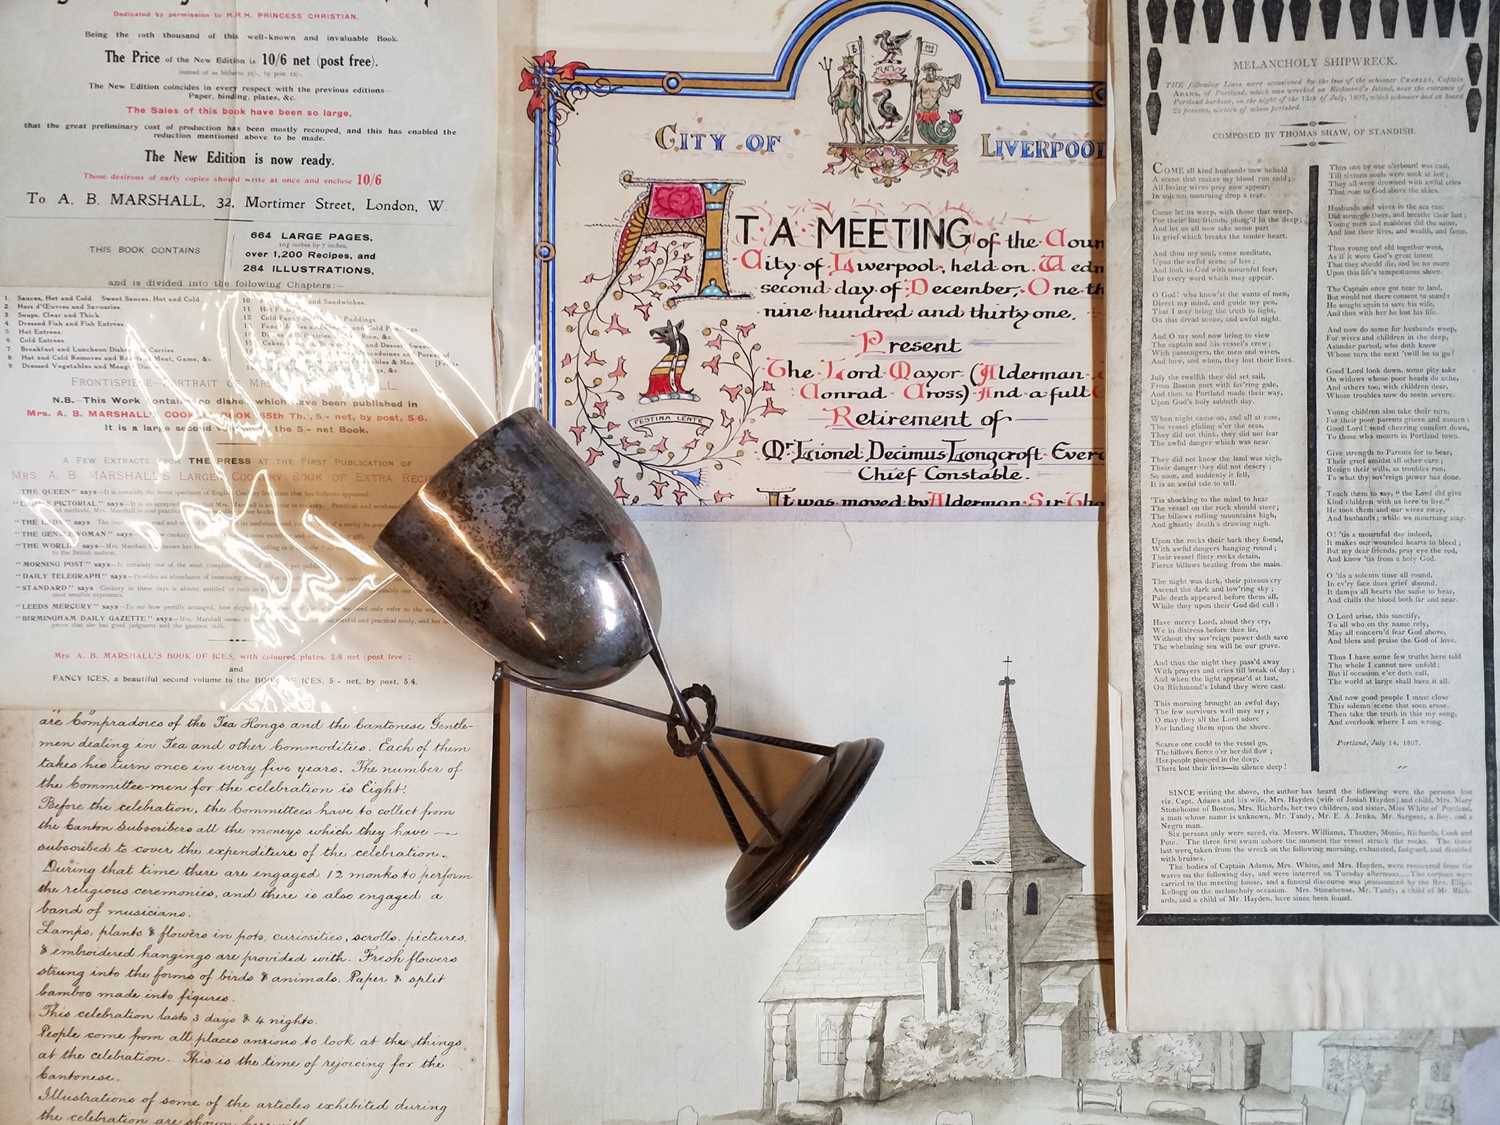 Dedicated by permission to H.R.H. PRINCESS CHRISTIAN.
Being the 10th thousand of this well-known and invaluable Book.
The Price of the New Edition is 10/6 net (post free).
The New Edition coincides in every respect with the previous editions—
Paper, binding, plates, &c.
The Sales of this book have been so large,
that the great preliminary cost of production has been mostly recouped, and this has enabled the
reduction mentioned above to be made.
The New Edition is now ready.
Those desirous of early copies should write at once and enclose 10/6
To A. B. MARSHALL, 32, Mortimer Street, London, W.
THIS BOOK CONTAINS
664 LARGE PAGES,
10¼ inches by 7 inches,
over 1,200 Recipes, and
284 ILLUSTRATIONS,
and is divided into the following Chapters:—
1. Sauces, Hot and Cold. Sweet Sauces, Hot and Cold.
2. Hors d'Œuvres and Savouries
3. Soups, Clear and Thick
4. Dressed Fish and Fish Entrees
5. Hot Entrees
6. Cold Entrees
7. Breakfast and Luncheon Dishes Curries
8. Hot and Cold Removes and Roasts Meat, Game, &c.
9. Dressed Vegetables and
FRONTISPIECE—PORTRAIT OF
N.B.—This Work contains no dishes which have been published in
Mrs. A. B. MARSHALL'S COOKERY BOOK, 65th Th., 5/- net, by post, 5/6.
It is a large second the 5/- net Book.
A FEW EXTRACTS FROM THE PRESS AT THE FIRST PUBLICATION OF
MRS A. B. MARSHALL'S LARGER COOKERY BOOK OF EXTRA
"THE QUEEN" says
PICTORIAL" says
"THE LADY" says
"THE GENTLEWOMAN" says
"THE WORLD" says
"MORNING POST" says
"DAILY TELEGRAPH" says
"STANDARD" says
"LEEDS MERCURY" says
"BIRMINGHAM DAILY GAZETTE" says
Mrs. A. B. MARSHALL'S BOOK OF ICES, with coloured plates, 2/6 net (post free);
and
FANCY ICES, a beautiful second volume to the BOOK OF ICES, 5/- net, by post, 5/4.
are Compradores of the Tea Hongs and the Cantonese Gentle-
men dealing in Tea and other Commodities. Each of them
takes his turn once in every five years. The number of
the Committee-men for the celebration is Eight.
Before the celebration, the Committees have to collect from
the Canton Subscribers all the moneys which they have
subscribed to cover the expenditure of the celebration.
During that time there are engaged 12 monks to perform
the religious ceremonies, and there is also engaged a
band of musicians.
Lamps, plants & flowers in pots, curiosities, scrolls, pictures,
& embroidered hangings are provided with. Fresh flowers
strung into the forms of birds & animals. Paper & split
bamboo made into figures.
This celebration lasts 3 days & 4 nights.
People come from all places anxious to look at the things
at the celebration. This is the time of rejoicing for the
Cantonese.
Illustrations of some of the articles exhibited during
the celebration are shown
CITY OF LIVERPOOL
AT A MEETING of the Coun
City of Liverpool, held on Wedn
second day of December, One th
nine hundred and thirty one.
Present
The Lord Mayor (Alderman
Conrad Cross) And a full
Retirement of
Mr. Lionel Decimus Longcroft Ever
Chief Constable.
It was moved by Alderman Sir Tho
FESTINA LENTE
MELANCHOLY SHIPWRECK.
THE following Lines were occasioned by the loss of the schooner CHARLES, Captain
ADAMS, of Portland, which was wrecked on Richmond's Island, near the entrance of
Portland harbour, on the night of the 12th of July, 1807, which schooner had on board
22 persons, sixteen of whom perished.
COMPOSED BY THOMAS SHAW, OF STANDISH.
COME all kind husbands now behold
A scene that makes my blood run cold;
All loving wives pray now appear,
In solemn mourning drop a tear.
Come let us weep, with those that weep,
For their lost friends, plung'd in the deep;
And let us all now take some part
In grief which breaks the tender heart.
And thou my soul, come meditate,
Upon the awful scene of late;
And look to God with mournful fear,
For every word which may appear.
O God! who know'st the wants of men,
Direct my mind, and guide my pen,
That I may bring the truth to light,
On this dread scene, and awful night.
And O my soul now bring to view
The captain and his vessel's crew;
With passengers, the men and wives,
And how, and when, they lost their lives.
July the twelfth they did set sail,
From Boston port with fav'ring gale,
And then to Portland made their way,
Upon God's holy sabbath day.
When night came on, and all at ease,
The vessel gliding o'er the seas,
They did not think, they did not fear
The awful danger which was near.
They did not know the land was nigh,
Their danger they did not descry;
So soon, and suddenly it fell,
It is an awful tale to tell.
'Tis shocking to the mind to hear
The vessel on the rock should steer;
The billows rolling mountains high,
And ghastly death a drawing nigh.
Upon the rocks their bark they found,
With awful dangers hanging round;
Their vessel flinty rocks detain,
Fierce billows beating from the main.
The night was dark, their piteous cry
Ascend the dark and low'ring sky;
Pale death appeared before them all,
While they upon their God did call:
Have mercy Lord, aloud they cry,
We in distress before thee lie,
Without thy sov'reign power doth save
The whelming sea will be our grave.
And thus the night they pass'd away
With prayers and cries till break of day;
And when the light appear'd at last,
On Richmond's Island they were cast.
This morning brought an awful day,
The few survivors well may say;
O may they all the Lord adore
For landing them upon the shore.
Scarce one could to the vessel go,
The billows fierce o'er her did flow;
Her people plunged in the deep,
There lost their lives—in silence sleep!
Thus one by one o'erboard was cast,
Till sixteen souls were sunk at last;
They all were drowned with awful cries
That rose to God above the skies.
Husbands and wives in the sea cast,
Did struggle there, and breathe their last;
Young men and maidens did the same,
And lost their lives, and wealth, and fame.
Thus young and old together went,
As if it were God's great intent
That they should die, and be no more
Upon this life's tempestuous shore.
The Captain once got near to land,
But would not there consent to stand:
He sought again to save his wife,
And thus with her he lost his life.
And now do some for husbands weep,
For wives and children in the deep;
Asundar parted, who doth know
Whose turn the next 'twill be to go!
Good Lord look down, some pity take
On widows whose poor heads do ache,
And others too, with children small,
Whose troubles now do seem severe.
Young children also take their turn,
For their poor parents grieve and mourn:
Good Lord! send cheering comfort down,
To those who mourn in Portland town.
Give strength to Parents for to bear,
Their grief amidst all other care;
Resign their wills, as troubles run,
To what thy sov'reign power has done.
Teach them to say, "the Lord did give
Kind children with us here to live."
He took them and our wives away,
And husbands; while we mourning stay.
O! 'tis a mournful day indeed,
It makes our wounded hearts to bleed;
But my dear friends, pray eye the rod,
And know 'tis from a holy God.
O 'tis a solemn time all round,
In ev'ry face does grief abound.
It damps all hearts the same to hear,
And chills the blood both far and near.
O Lord arise, this sanctify,
To all who on thy name rely,
May all concern'd fear God above,
And bless and praise the God of love.
Thus I have some few truths here told
The whole I cannot now unfold;
But if occasion e'er doth call,
The world at large shall have it all.
And now good people I must close
This solemn scene that soon arose.
Then take the truth in this my song,
And overlook where I am wrong.
Portland, July 14, 1807.
SINCE writing the above, the author has heard the following were the persons lost
viz. Capt. Adams and his wife, Mrs. Hayden (wife of Josiah Hayden) and child, Mrs. Mary
Stonehouse of Boston, Mrs. Richards, her two children, and sister, Miss White of Portland,
a man whose name is unknown, Mr. Tandy, Mr. E. A. Jenks, Mr. Sargent, a Boy, and a
Negro man.
Six persons only were saved, viz. Messrs. Williams, Thaxter, Monie, Richards, Cook and
Pote. The three first swam ashore the moment the vessel struck the rocks. The three
last were taken from the wreck on the following morning, exhausted, fatigued, and disabled
with bruises.
The bodies of Captain Adams, Mrs. White, and Mrs. Hayden, were recovered from the
waves on the following day, and were interred on Tuesday afternoon. The corpses were
carried to the meeting house, and a funeral discourse was pronounced by the Rev. Elijah
Kellogg on the melancholy occasion. Mrs. Stonehouse, Mr. Tandy, a child of Mr. Rich-
ards, and a child of Mr. Hayden, have since been found.